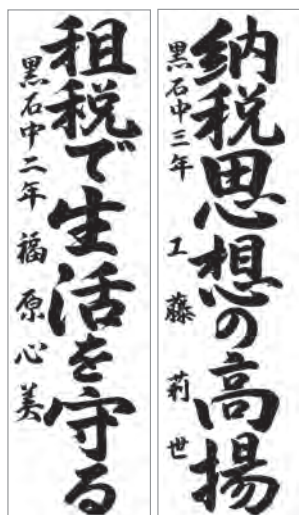 納税思想の高揚
黒石中三年 工藤莉世
租税で生活を守る
黒石中二年 福原心美